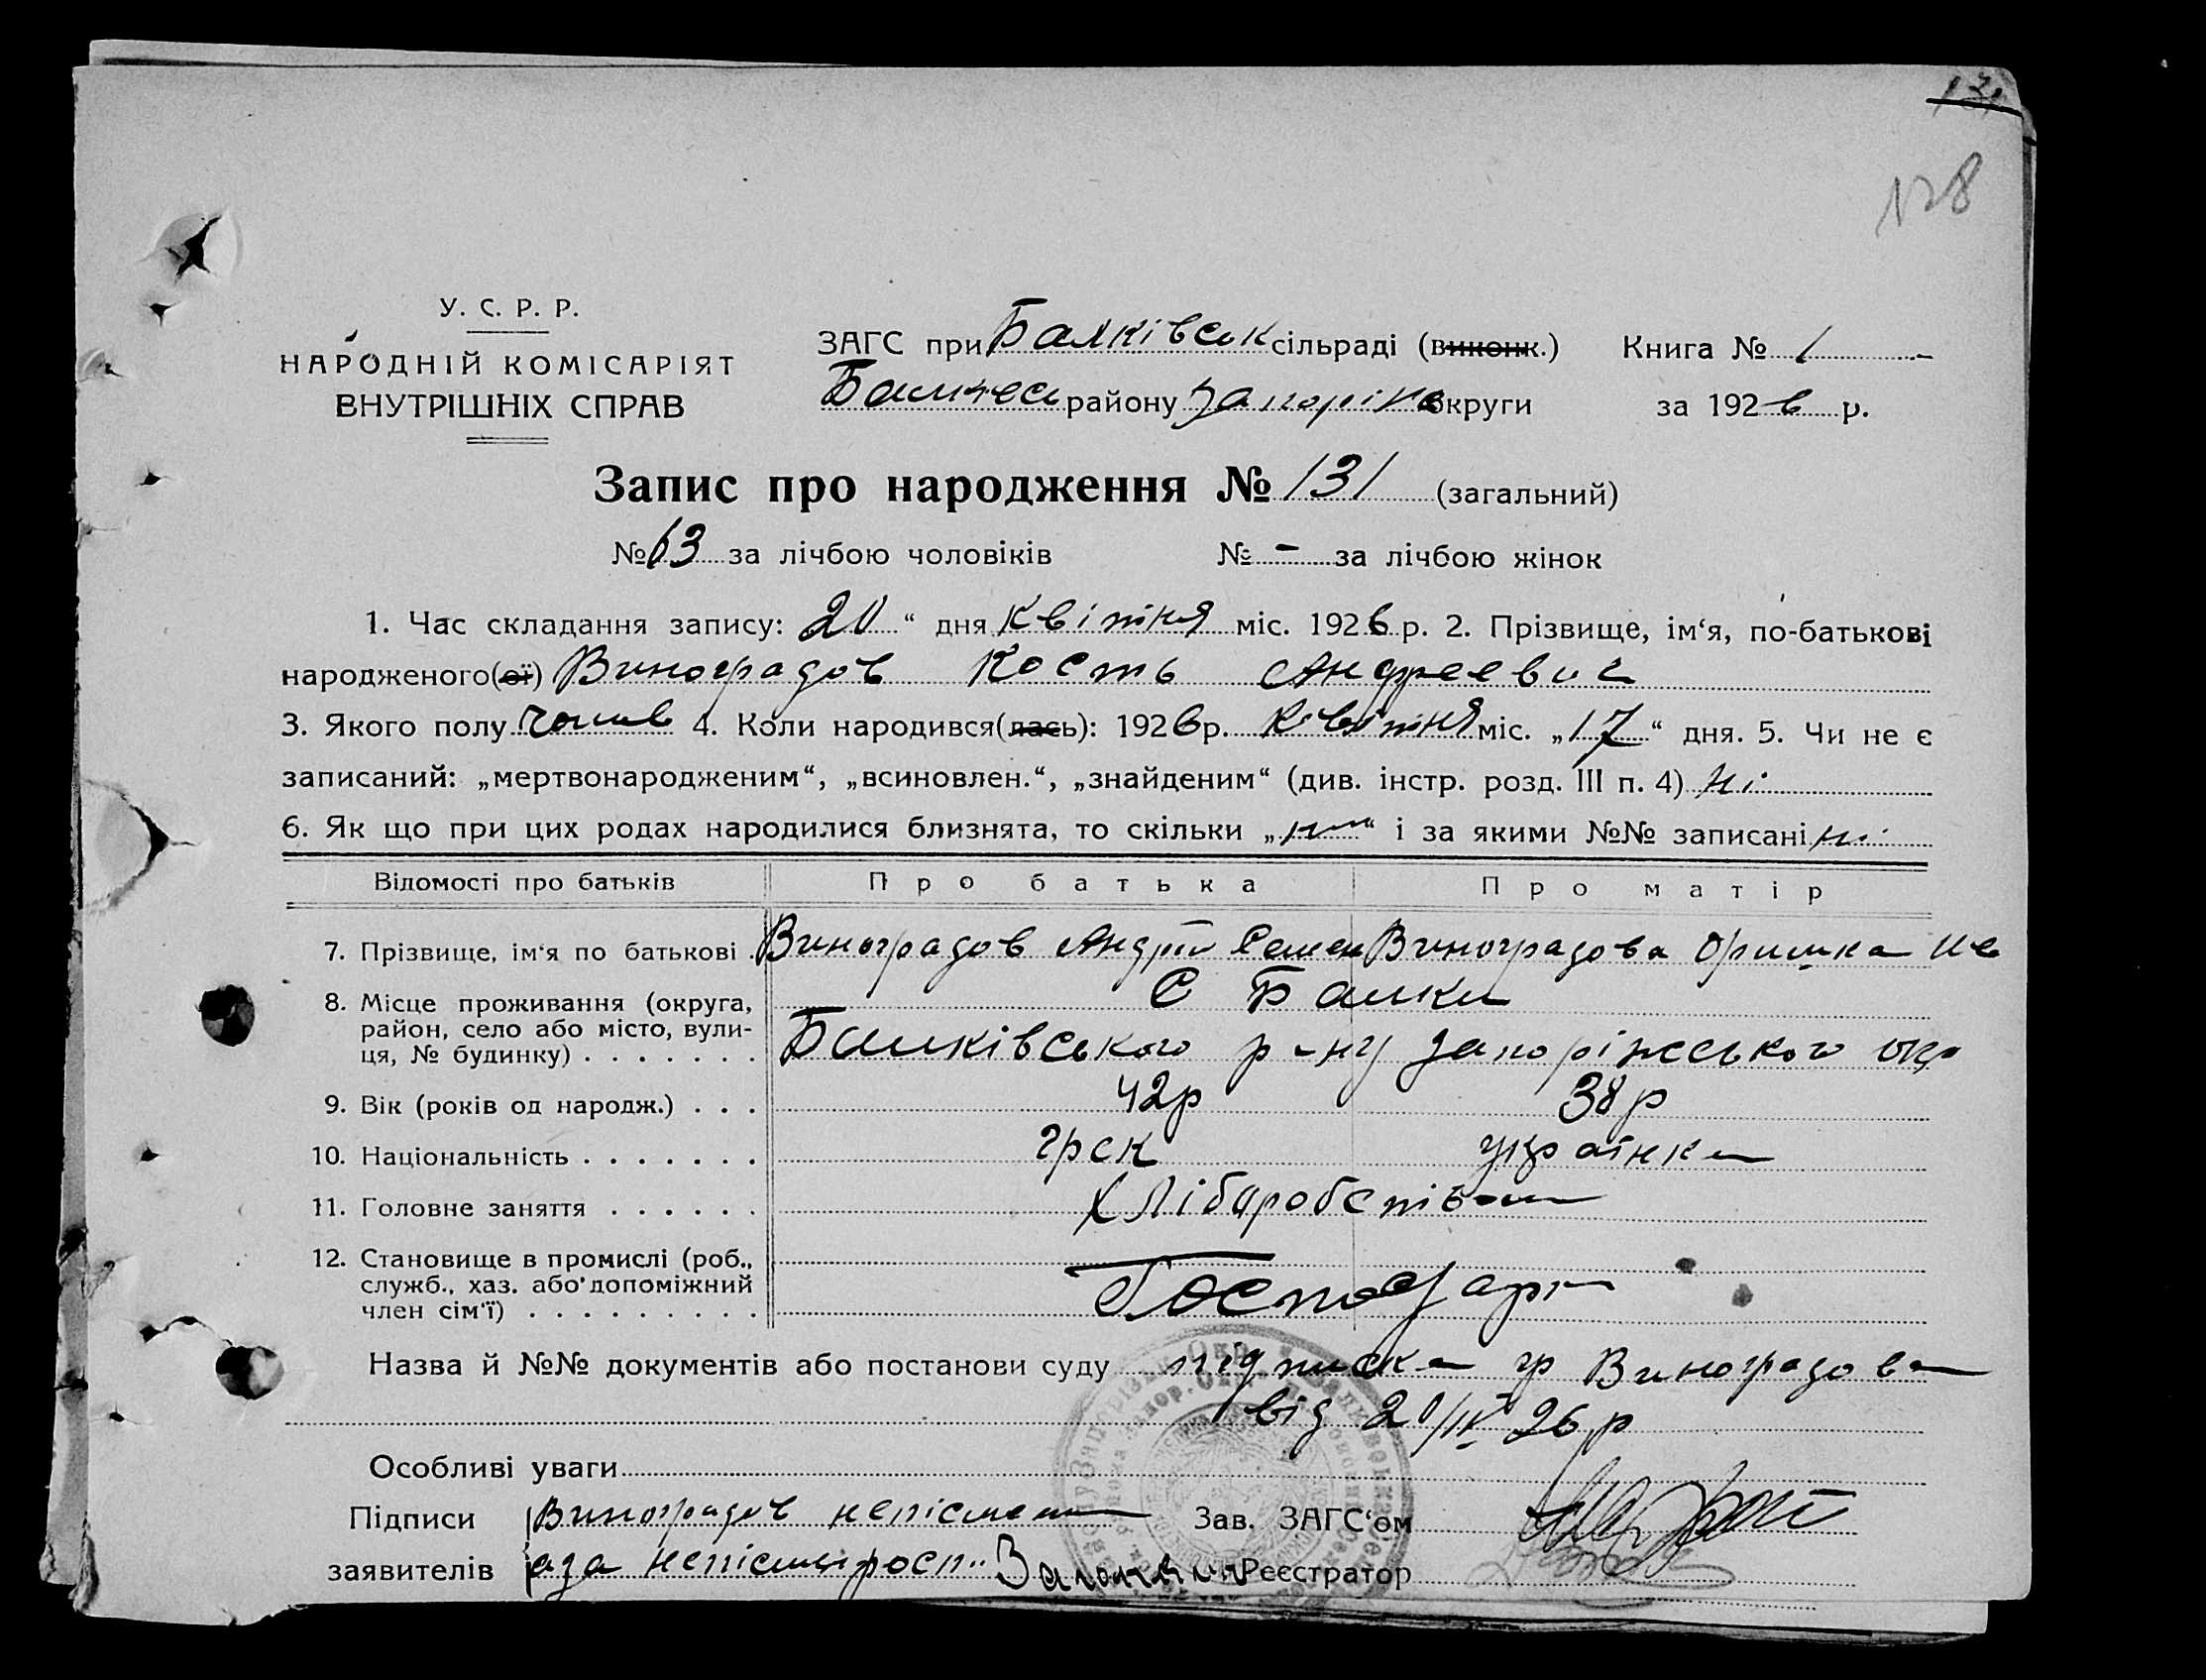 128
У. С. Р. Р.
НАРОДНІЙ КОМІСАРІЯТ
ВНУТРІШНІХ СПРАВ
ЗАГС при Балківськ сільраді (виконк.) Книга № 1
району Запоріж округи за 1926 р.
Запис про народження № 131 (загальний)
№ 63 за лічбою чоловіків № - за лічбою жінок
1. Час складання запису: 20 “ дня Квітня міс. 1926 р. 2. Прізвище, ім‘я, по-батькові
народженого(ої) Виноградов Кость Андреевич
3. Якого полу чолов 4. Коли народився(лась): 1926 р. Квітня міс. „17“ дня. 5. Чи не є
записаний: „мертвонародженим“, „всиновлен.“, „знайденим“ (див. інстр. розд. III п. 4) ні
6. Як що при цих родах народилися близнята, то скільки „ “ і за якими №№ записані ні
Відомості про батьків Про батька Про матір
7. Прізвище, ім‘я по батькові . Виноградов Андрій Семен Виноградова Оришка
8. Місце проживання (округа, С Балки
район, село або місто, вули-
ця, № будинку) . . . . . . . Балківського р-ну Запоріжського окр
9. Вік (років од народж.) . . . 42р 38р
10. Національність . . . . . . . грек українка
11. Головне заняття . . . . . . Хліборобство
12. Становище в промислі (роб.,
служб., хаз. або допоміжний Господарі
член сім‘ї) . . . . . . . . .
Назва й №№ документів або постанови суду підписка гр Виноградова
від 20/IV 26 р
Особливі уваги
Підписи Виноградов непісмен Зав. ЗАГС‘ом
заявителів аза непісьм росп Реєстратор